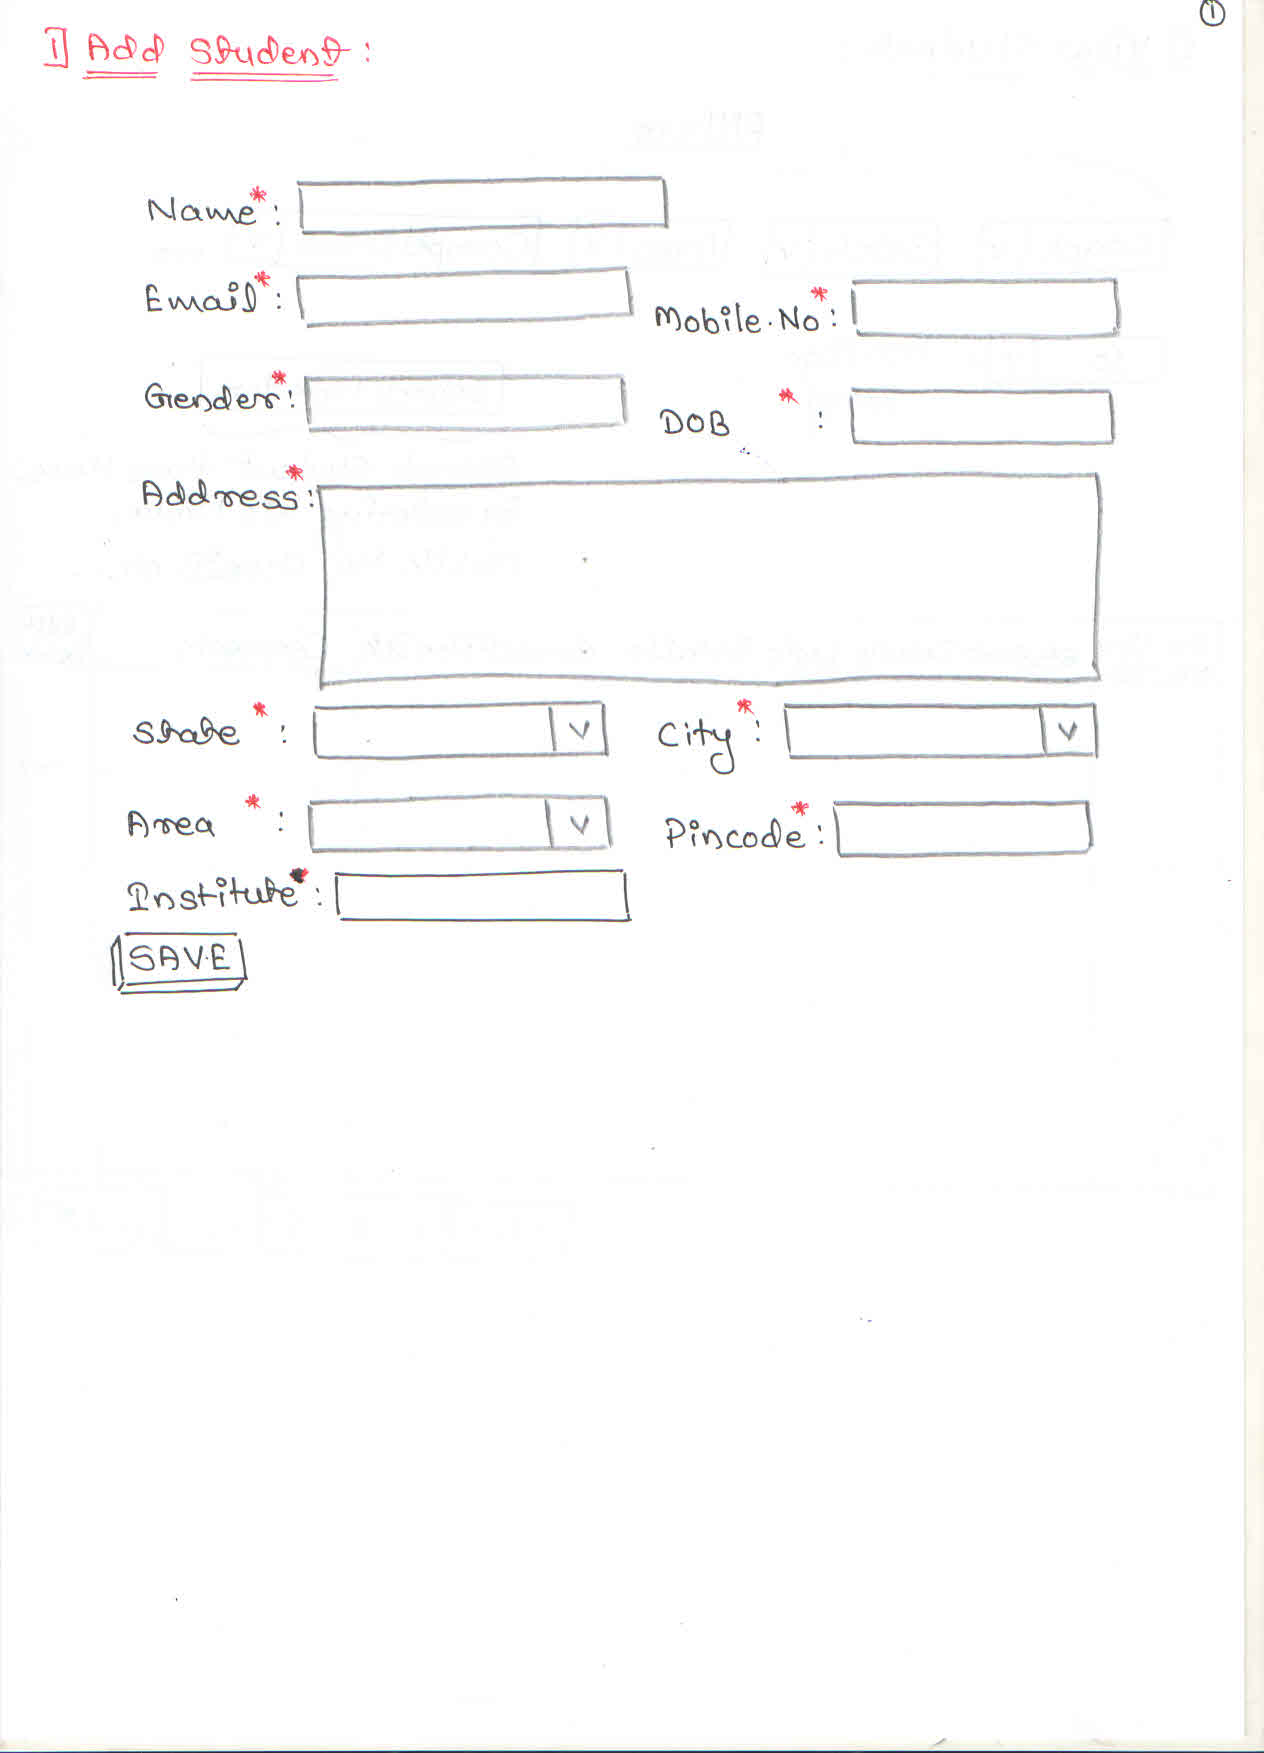 ①
1] Add Student:
Name*:
Email*: Mobile.No*:
Gender*: DOB *:
Address*:
State *: V City*: V
Area *: V Pincode*:
Institute*:
SAVE